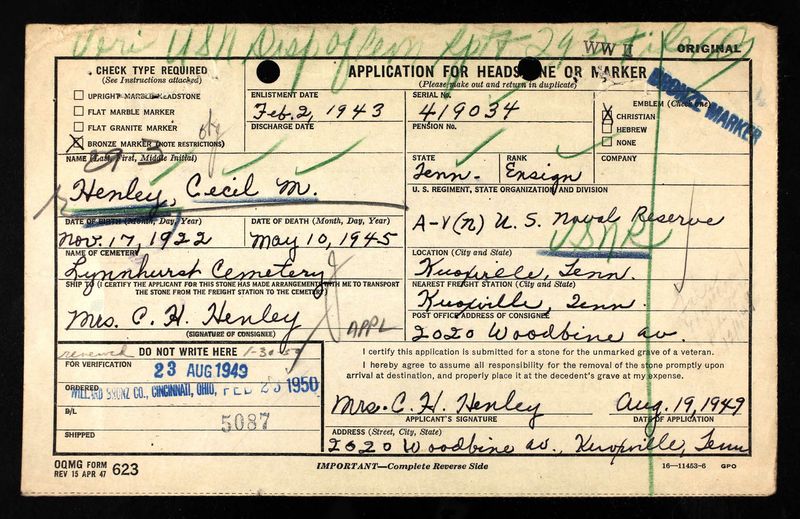 Veri USN Disp of Rem Rpt 293 Filed
WW II ORIGINAL
CHECK TYPE REQUIRED
(See Instructions attached)
UPRIGHT MARBLE HEADSTONE
FLAT MARBLE MARKER
FLAT GRANITE MARKER
BRONZE MARKER (NOTE RESTRICTIONS)
APPLICATION FOR HEADSTONE OR MARKER
(Please make out and return in duplicate)
BRONZE MARKER
ENLISTMENT DATE
Feb. 2, 1943
DISCHARGE DATE
SERIAL No.
419034
PENSION No.
EMBLEM (Check one)
CHRISTIAN
HEBREW
NONE
293
NAME (Last, First, Middle Initial)
Henley, Cecil M.
STATE
Tenn.
RANK
Ensign
COMPANY
U. S. REGIMENT, STATE ORGANIZATION AND DIVISION
A-V(N) U. S. Naval Reserve
USNR
DATE OF BIRTH (Month, Day, Year)
Nov. 17, 1922
DATE OF DEATH (Month, Day, Year)
May 10, 1945
NAME OF CEMETERY
Lynnhurst Cemetery
LOCATION (City and State)
Knoxville, Tenn.
SHIP TO (I CERTIFY THE APPLICANT FOR THIS STONE HAS MADE ARRANGEMENTS WITH ME TO TRANSPORT
THE STONE FROM THE FREIGHT STATION TO THE CEMETERY)
Mrs. C. H. Henley
(SIGNATURE OF CONSIGNEE)
APPL
NEAREST FREIGHT STATION (City and State)
Knoxville, Tenn.
POST OFFICE ADDRESS OF CONSIGNEE
2020 Woodbine av.
DO NOT WRITE HERE
FOR VERIFICATION
23 AUG 1949
ORDERED
WILLARD BRONZ CO., CINCINNATI, OHIO, FEB 23 1950
B/L
5087
SHIPPED
I certify this application is submitted for a stone for the unmarked grave of a veteran.
I hereby agree to assume all responsibility for the removal of the stone promptly upon
arrival at destination, and properly place it at the decedent's grave at my expense.
Mrs. C. H. Henley Aug. 19, 1949
APPLICANT'S SIGNATURE DATE OF APPLICATION
ADDRESS (Street, City, State)
2020 Woodbine av., Knoxville, Tenn
OQMG FORM
REV 15 APR 47 623
IMPORTANT—Complete Reverse Side
16—11453-6 GPO